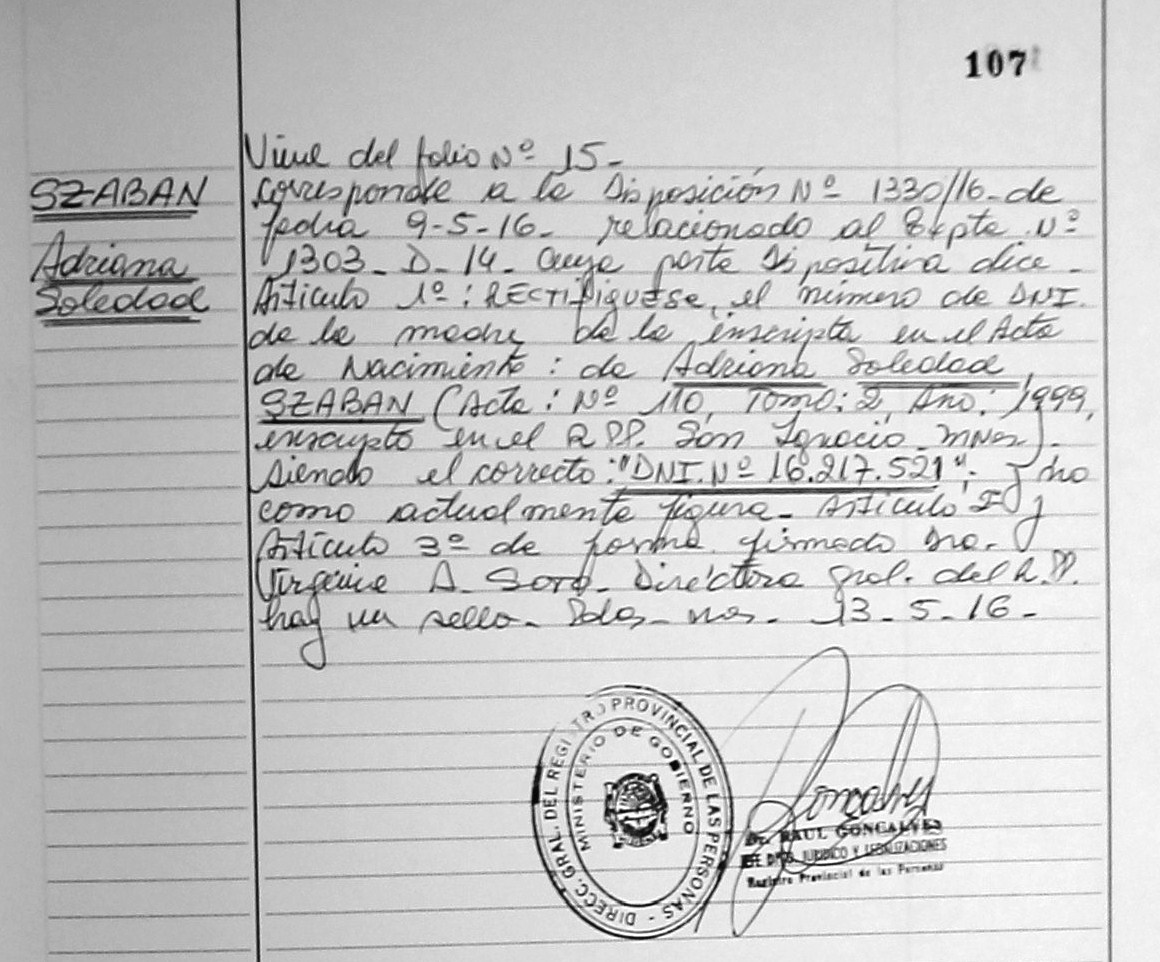 107
Viene del folio Nº 15-
SZABAN
Adriana
Soledad
Corresponde a la Disposición Nº 1330/16- de
fecha 9-5-16- relacionado al Expte. Nº
1303-D-14- cuya parte dispositiva dice-
Artículo 1º: RECTIFIQUESE, el número de DNI.
de la madre de la inscripta en el Acta
de Nacimiento: de Adriana Soledad
SZABAN (Acta: Nº 110, Tomo: 2, Año: 1999,
inscripta en el R.P.P. San Ignacio- Mnes).
siendo el correcto: "DNI. Nº 16.217.521". y no
como actualmente figura- Artículo 2º y
Artículo 3º de forma. firmado Dra.
Virginia A. Soto- Directora Gral. del R.P.
hay un sello- Pdas- mnes- 13-5-16-
DIRECC. GRAL. DEL REGISTRO PROVINCIAL DE LAS PERSONAS -
MINISTERIO DE GOBIERNO
Goncalves
Dr. RAUL GONCALVES
JEFE DPTO. JURIDICO Y LEGALIZACIONES
Registro Provincial de las Personas